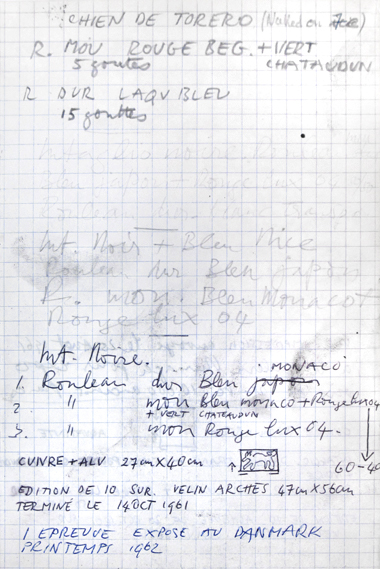 CHIEN DE TORERO (Naked on
R. MOU ROUGE BEG. + VERT
5 gouttes CHATAUDUN
R DUR LAQU BLEU
15 gouttes
Int. Noir + Bleu Nice
Rouleau dur Bleu japon
R. mou. Bleu Monaco +
Rouge lux 04
Int. Noire.
MONACO
1. Rouleau dur Bleu japon
2. " mou Bleu monaco + Rouge lux 04
+ VERT CHATEAUDUN
3. " mou Rouge lux 04.
CUIVRE + ALU 27cm X 40cm
60-40
EDITION DE 10 SUR. VELIN ARCHES 47cm X 56cm
TERMINÉ LE 14 OCT 1961
1 EPREUVE EXPOSE AU DANMARK
PRINTEMPS 1962